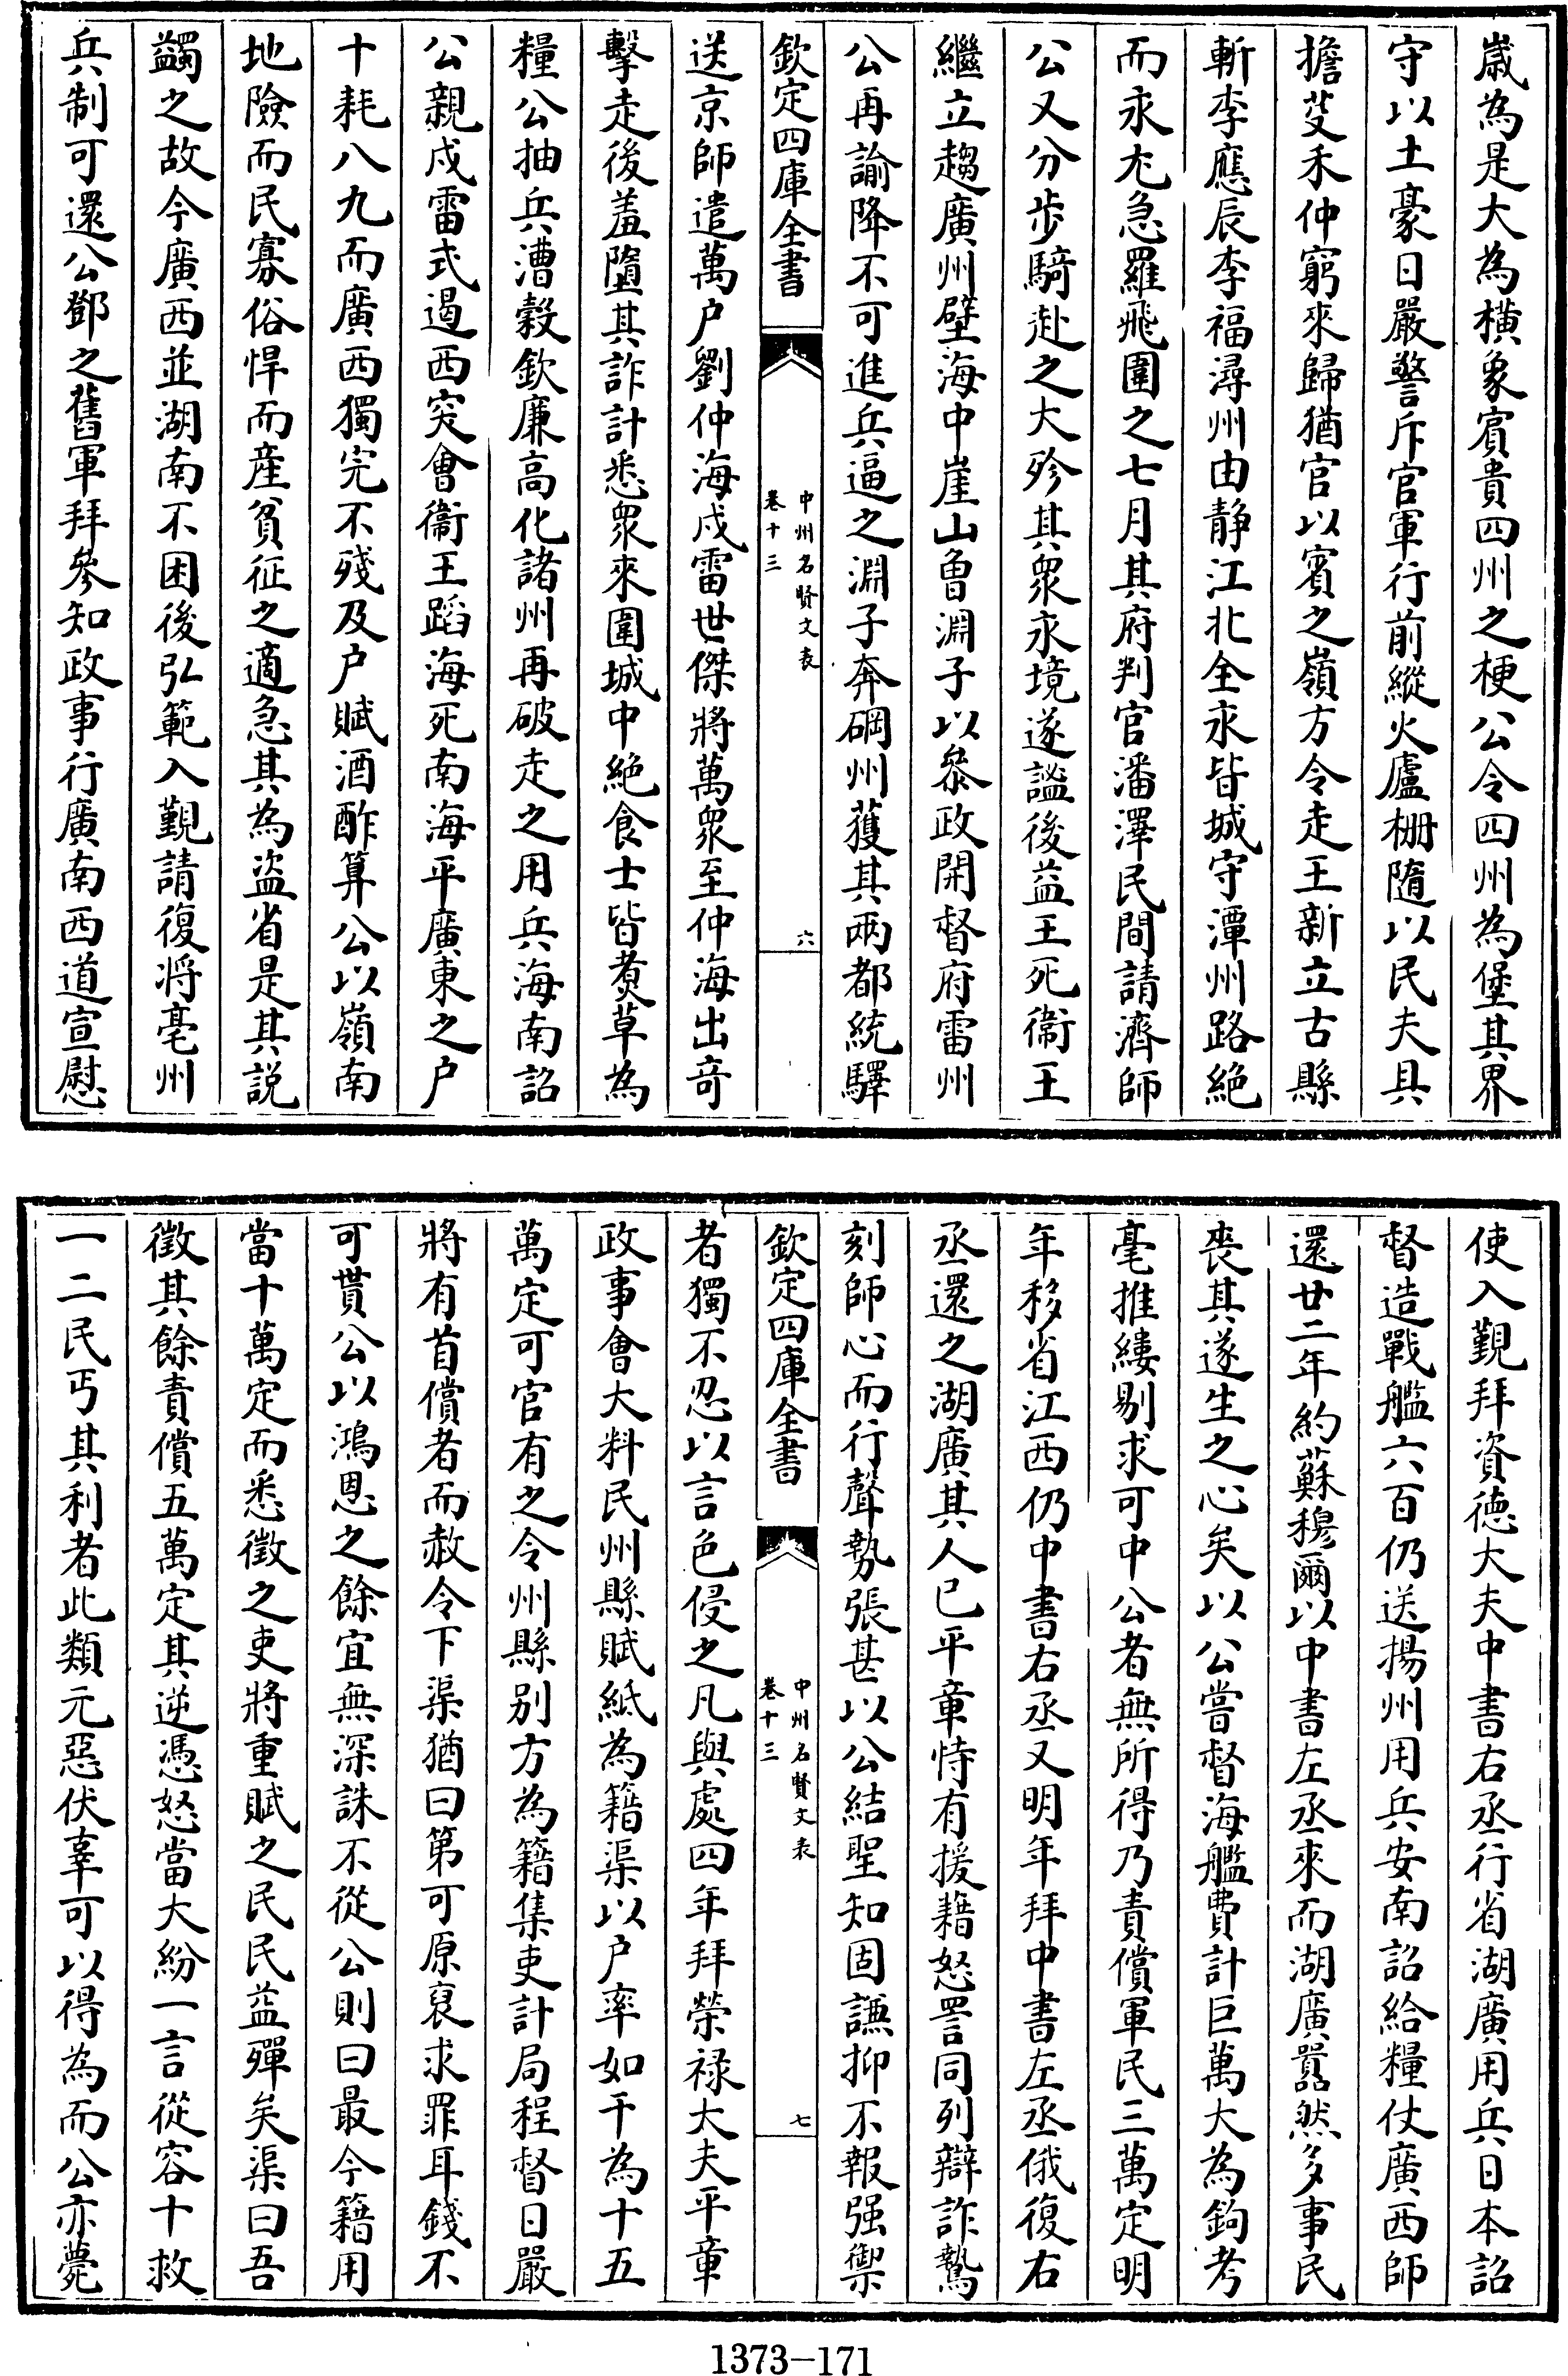 歳為是大為橫象賓貴四州之梗公令四州為堡其界
守以土豪日嚴警斥官軍行前縱火廬柵隨以民夫具
擔芟禾仲窮來歸猶官以賓之嶺方令走王新立古縣
斬李應辰李福潯州由静江北全永皆城守潭州路絶
而永尤急羅飛圍之七月其府判官潘澤民間請濟師
公又分步騎赴之大殄其衆永境遂謐後益王死衛王
繼立趨廣州壁海中崖山曾淵子以叅政開督府雷州
公再諭降不可進兵逼之淵子奔碙州獲其兩都統驛
欽定四庫全書
中州名賢文表
卷十三
六
送京師遣萬户劉仲海戍雷世傑將萬衆至仲海出竒
擊走後羞墮其詐計悉衆來圍城中絶食士皆煑草為
糧公抽兵漕穀欽廉高化諸州再破走之用兵海南詔
公親戍雷式遏西突會衛王蹈海死南海平廣東之户
十耗八九而廣西獨完不殘及户賦酒酢算公以嶺南
地險而民寡俗悍而産貧征之適急其為盗省是其説
蠲之故今廣西並湖南不困後弘範入覲請復将亳州
兵制可還公鄧之舊軍拜參知政事行廣南西道宣慰
使入覲拜資德大夫中書右丞行省湖廣用兵日本詔
督造戰艦六百仍送揚州用兵安南詔給糧仗廣西師
還廿二年約蘇穆爾以中書左丞來而湖廣囂然多事民
喪其遂生之心矣以公嘗督海艦費計巨萬大為鉤考
毫推縷剔求可中公者無所得乃責償軍民三萬定明
年移省江西仍中書右丞又明年拜中書左丞俄復右
丞還之湖廣其人已平章恃有援藉怒詈同列辯詐鷙
刻師心而行聲勢張甚以公結聖知固謙抑不報强禦
欽定四庫全書
中州名賢文表
卷十三
七
者獨不忍以言色侵之凡與處四年拜榮祿大夫平章
政事會大料民州縣賦紙為籍渠以户率如干為十五
萬定可官有之令州縣别方為籍集吏計局程督日嚴
將有首償者而赦令下渠猶曰第可原裒求罪耳錢不
可貰公以鴻恩之餘宜無深誅不從公則曰最今籍用
當十萬定而悉徵之吏將重賦之民民益殫矣渠曰吾
徵其餘責償五萬定其逆憑怒當大紛一言從容十救
一二民丐其利者此類元惡伏辜可以得為而公亦薨
1373-171